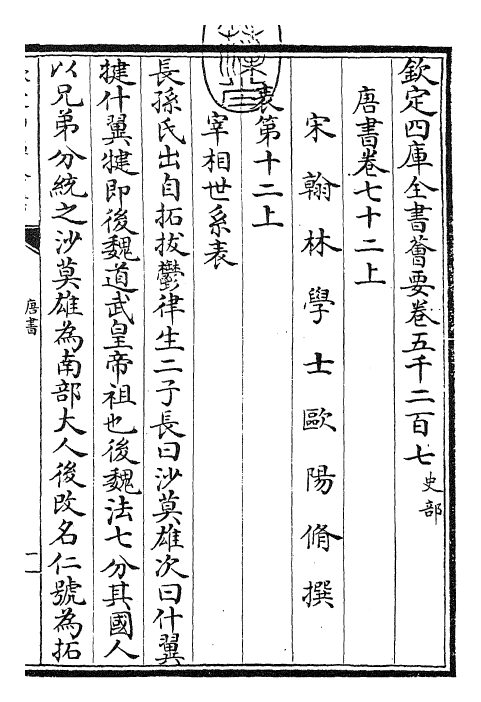 欽定四庫全書薈要卷五千二百七史部
唐書卷七十二上
宋翰林學士歐陽脩撰
表第十二上
宰相世系表
長孫氏出自拓拔鬱律生二子長曰沙莫雄次曰什翼
犍什翼犍即後魏道武皇帝祖也後魏法七分其國人
以兄弟分統之沙莫雄為南部大人後改名仁號為拓
唐書
一